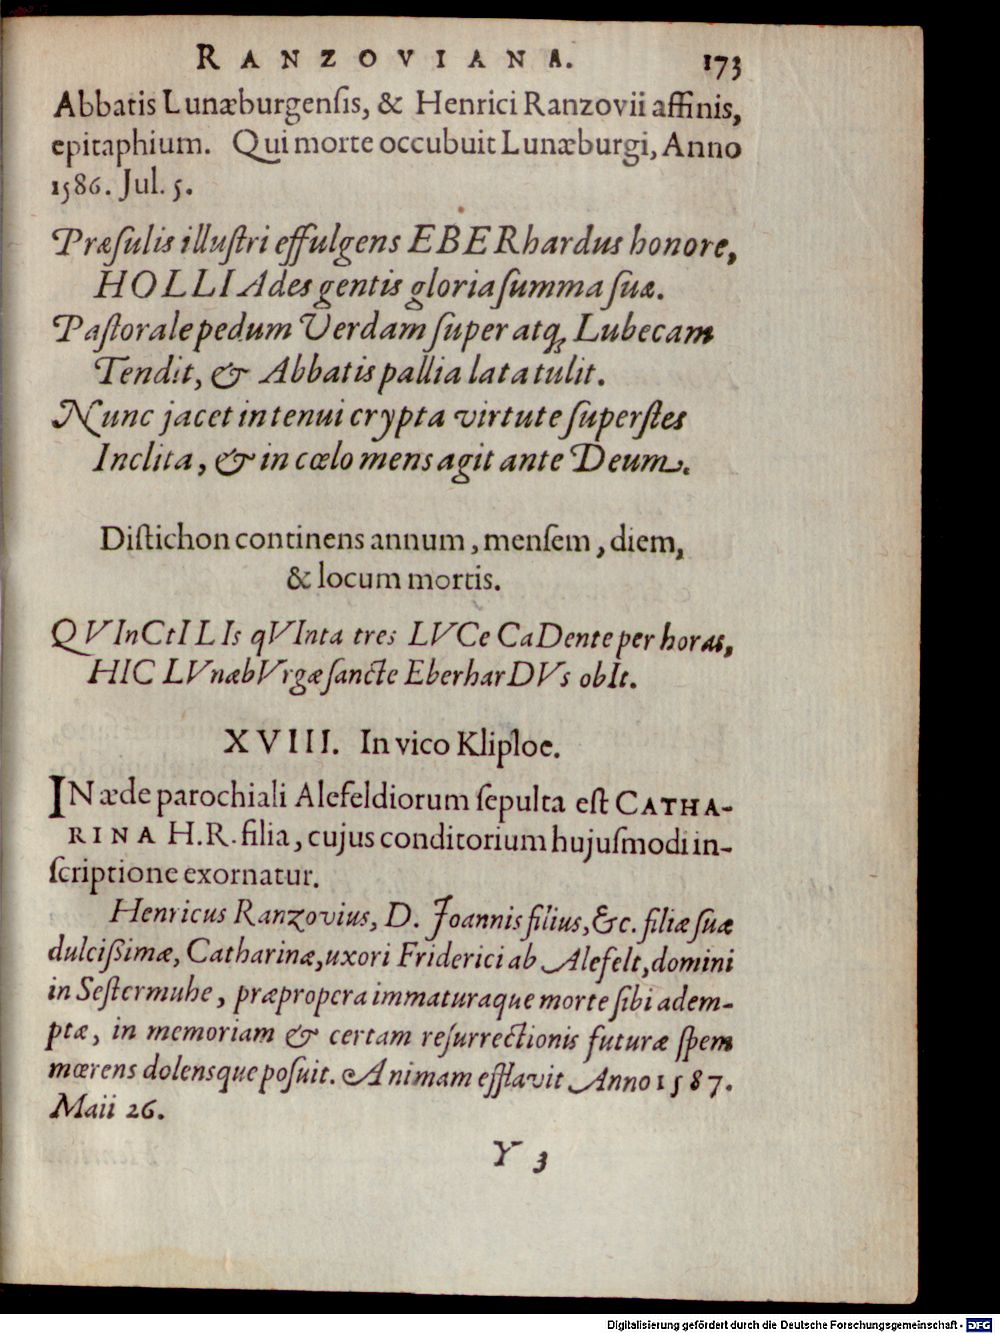 RANZOVIANA. 173
Abbatis Lunæburgenſis, & Henrici Ranzovii affinis,
epitaphium. Qui morte occubuit Lunæburgi, Anno
1586. Jul. 5.
Præſulis illuſtri effulgens EBERhardus honore,
HOLLIAdes gentis gloria ſumma ſuæ.
Paſtorale pedum Verdam ſuper atq; Lubecam
Tendit, & Abbatis pallia lata tulit.
Nunc jacet in tenui crypta virtute ſuperſtes
Inclita, & in cœlo mens agit ante Deum.
Diſtichon continens annum, menſem, diem,
& locum mortis.
QVInCtILIs qVInta tres LVCe CaDente per horas,
HIC LVnæbVrgæ ſancte EberharDVs obIt.
XVIII. In vico Kliploe.
IN æde parochiali Alefeldiorum ſepulta eſt CATHA-
RINA H.R. filia, cujus conditorium hujuſmodi in-
ſcriptione exornatur.
Henricus Ranzovius, D. Joannis filius, &c. filiæ ſuæ
dulciſſimæ, Catharinæ, uxori Friderici ab Alefelt, domini
in Seſtermuhe, præpropera immaturaque morte ſibi adem-
ptæ, in memoriam & certam reſurrectionis futuræ ſpem
mœrens dolensque poſuit. Animam efflavit Anno 1587.
Maii 26.
Y 3
Digitalisierung gefördert durch die Deutsche Forschungsgemeinschaft - DFG